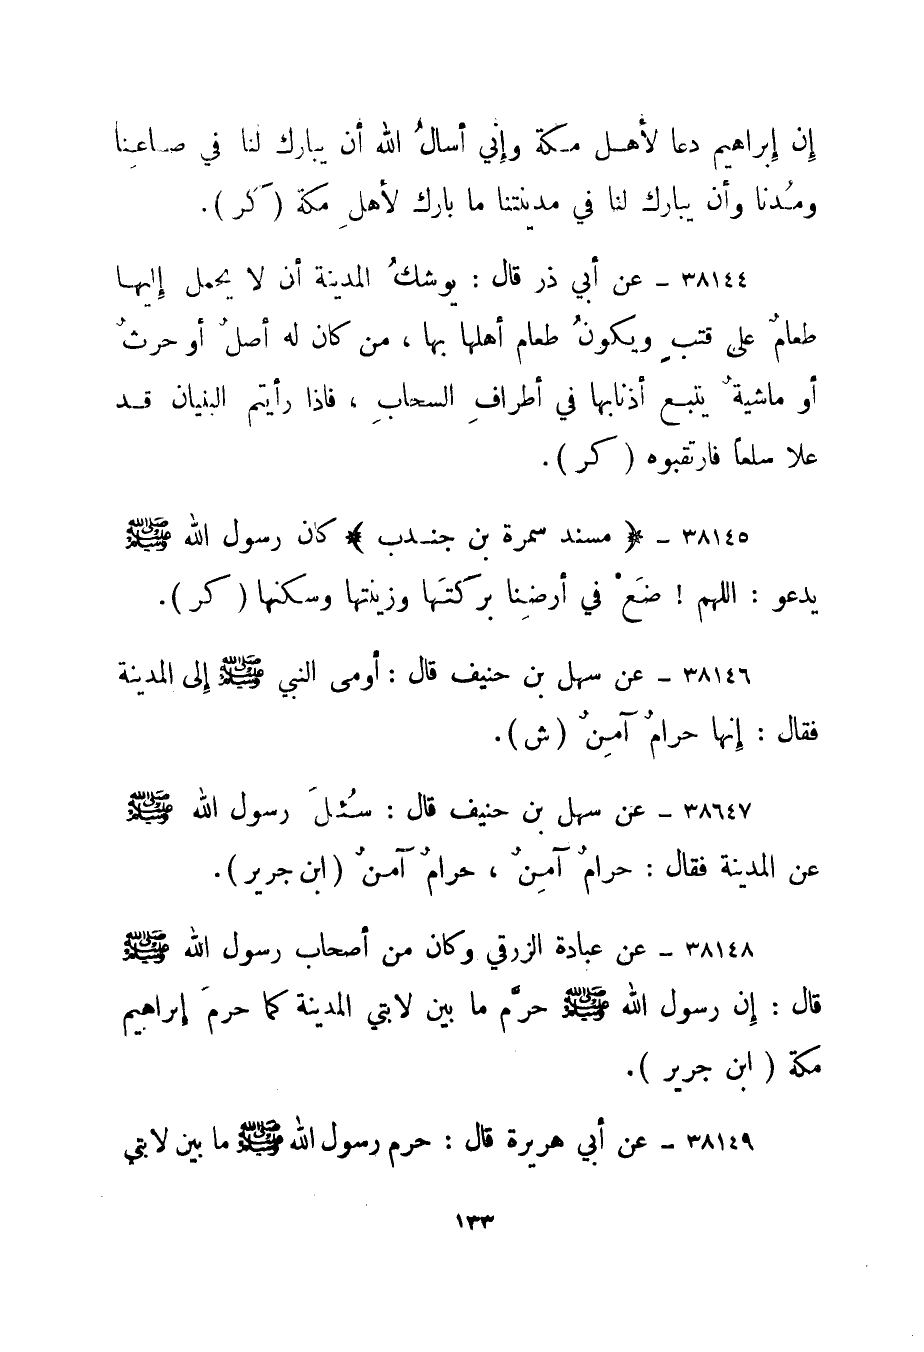 إن إبراهيم دعا لأهل مكة وإني أسألُ الله أن يبارك لنا في صاعِنا
ومُدنا وأن يبارك لنا في مدينتنا ما بارك لأهلِ مكة ( كر ).
٣٨١٤٤ ـ عن أبي ذر قال : يوشكُ المدينة أن لا يحمل إليها
طعامٌ على قتبٍ ويكونُ طعام أهلها بها ، من كان له أصلٌ أو حرثٌ
أو ماشيةٌ يتبع أذنابها في أطرافِ السحابِ ، فاذا رأيتم البنيان قد
علا سلعاً فارتقبوه ( كر ).
٣٨١٤٥ ـ ﴿ مسند سمرة بن جندب ﴾ كان رسول الله ﷺ
يدعو : اللهم ! ضَعْ في أرضِنا بركتَها وزينتها وسكنها ( كر ).
٣٨١٤٦ ـ عن سهل بن حنيف قال : أومى النبي ﷺ إلى المدينة
فقال : إنها حرامٌ آمِنٌ ( ش ).
٣٨٦٤٧ ـ عن سهل بن حنيف قال : سُئلَ رسول الله ﷺ
عن المدينة فقال : حرامٌ آمِنٌ ، حرامٌ آمنٌ ( ابن جرير ).
٣٨١٤٨ ـ عن عبادة الزرقي وكان من أصحاب رسول الله ﷺ
قال : إن رسول الله ﷺ حرَّم ما بين لابتي المدينة كما حرمَ إبراهيم
مكة ( ابن جرير ).
٣٨١٤٩ ـ عن أبي هريرة قال : حرم رسول الله ﷺ ما بين لابتي
١٣٣